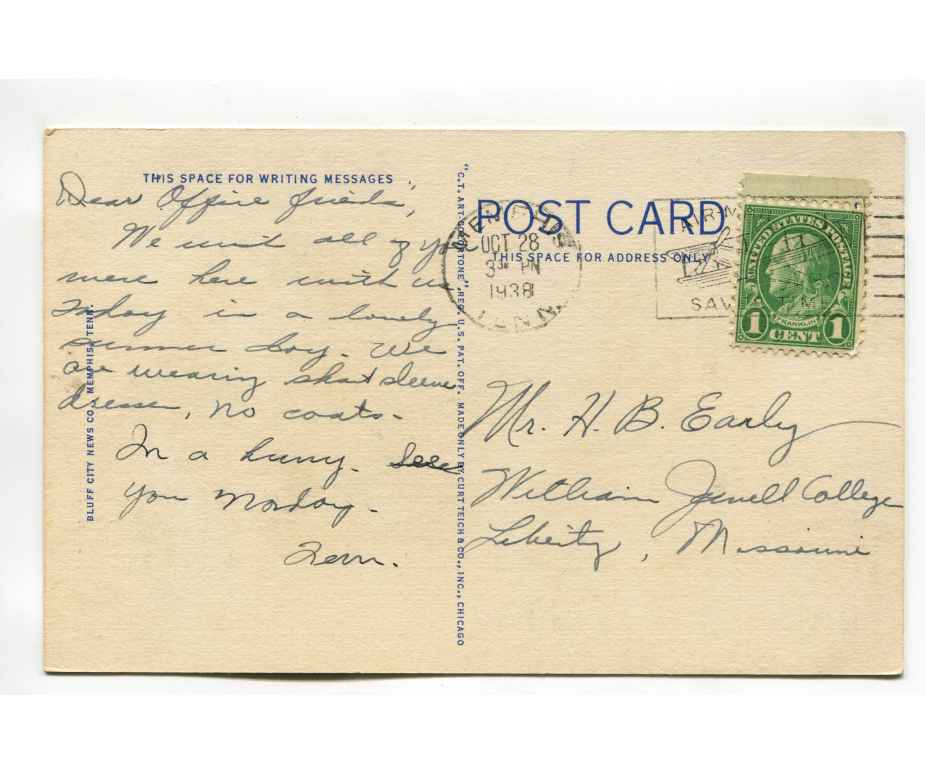 THIS SPACE FOR WRITING MESSAGES
Dear Office friends,
We wish all of you
were here with us
today in a lovely
summer day. We
are wearing short sleeve
dresses, no coats.
In a hurry. See
you Monday.
BLUFF CITY NEWS CO., MEMPHIS, TENN.
"C.T. ART-COLORTONE", REG. U.S. PAT. OFF. MADE ONLY BY CURT TEICH & CO., INC., CHICAGO
POST CARD
THIS SPACE FOR ADDRESS ONLY
OCT 28
3 PM
1938
TENN.
AIR
SAV
UNITED STATES POSTAGE
FRANKLIN
1 CENT 1
Mr. H. B. Early
William Jewell College
Liberty, Missouri